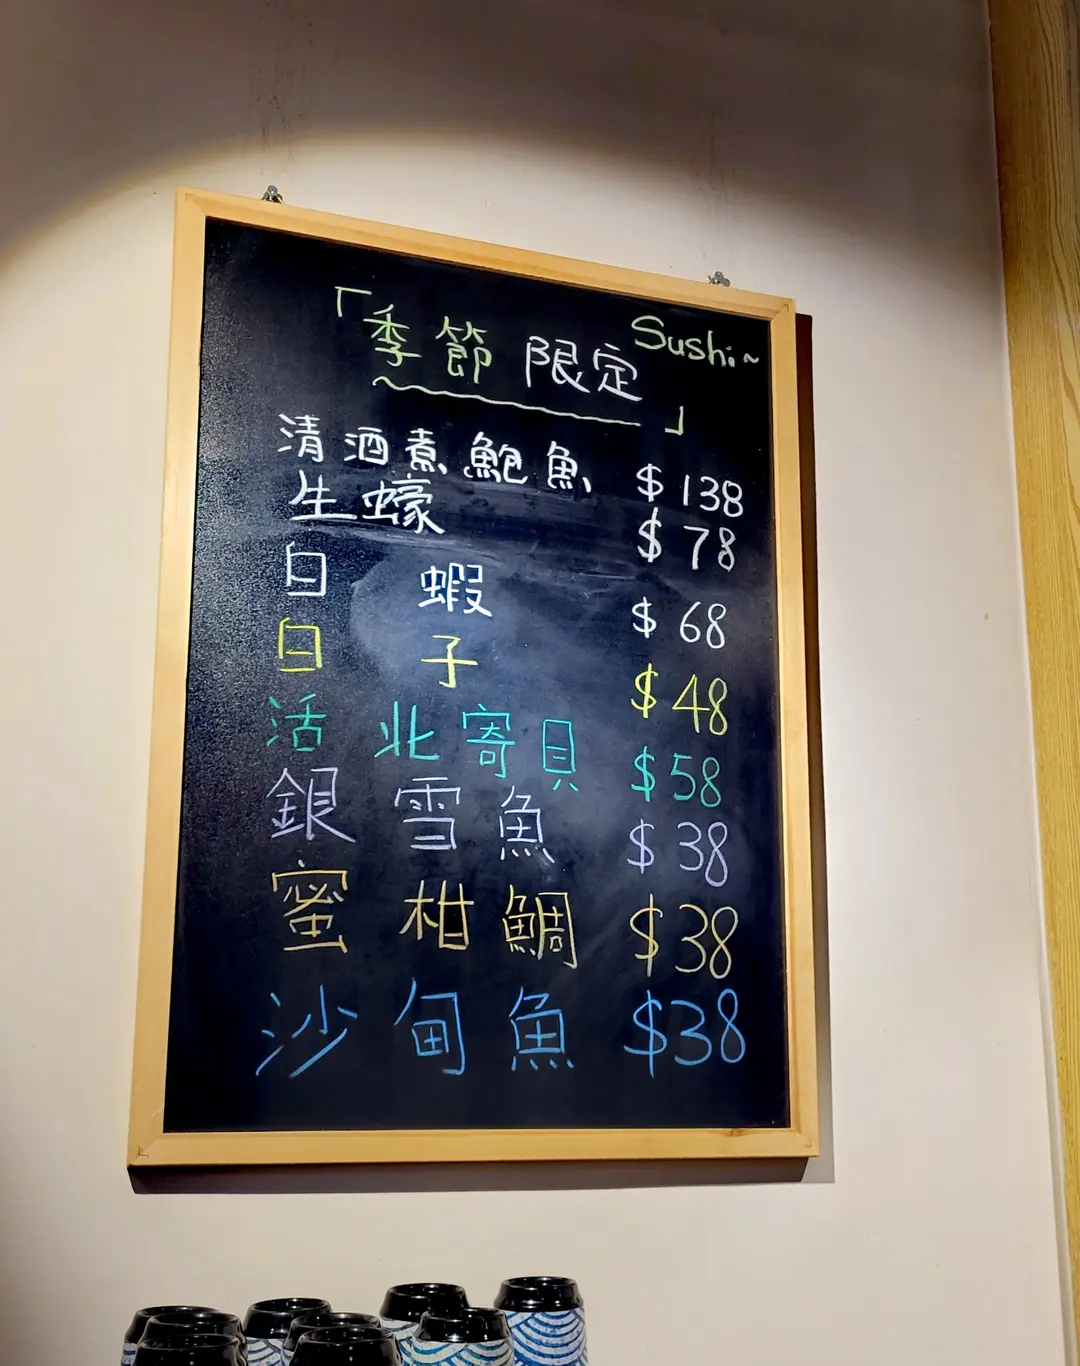 「季節限定 Sushi~」
清酒煮鮑魚 $138
生蠔 $78
白蝦 $68
白子 $48
活北寄貝 $58
銀雪魚 $38
蜜柑鯛 $38
沙甸魚 $38